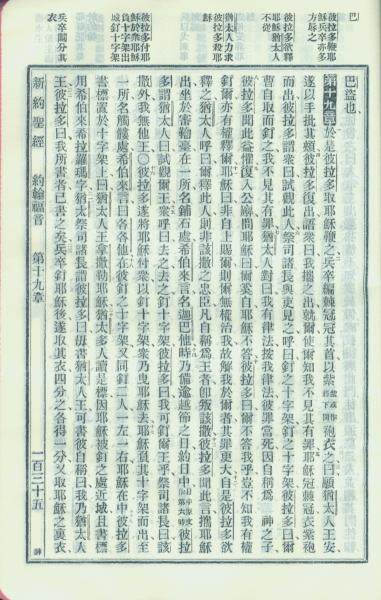 巴
巴盜也
彼拉多鞭耶
穌兵卒亦多
方辱之
第十九章 於是彼拉多取耶穌鞭之兵卒編棘冕冠其首以紫袍衣之曰願猶太人王安
遂以手批其頰彼拉多復出謂衆曰我攜之出就爾使爾知我不見其有罪耶穌冠棘冕衣紫袍
彼拉多欲釋
耶穌猶太人
不從
而出彼拉多謂衆曰試觀此人祭司諸長與吏見之呼曰釘之十字架釘之十字架彼拉多曰爾
曹自取而釘之我不見其有罪猶太人對曰我有律法按我律法彼罪當死因自稱爲 神之子
彼拉多聞此益懼復入公廨問耶穌曰爾奚自耶穌不答彼拉多曰爾不答我乎豈不知我有權
釘爾亦有權釋爾耶穌曰非自上賜爾則爾無權治我故解我於爾者其罪更大自是彼拉多欲
猶太人力求
彼拉多殺耶
穌
釋之猶太人呼曰爾釋此人則非該撒之忠臣凡自稱爲王者卽叛該撒彼拉多聞此言攜耶穌
出坐於審鞫臺在一所名鋪石處希伯來言名迦巴他時乃備逾越節之日約日中彼拉
多謂猶太人曰試觀爾王衆呼曰去之去之釘十字架彼拉多曰我可釘爾王乎祭司諸長曰該
彼拉多付耶
穌於衆耶穌
負十字架出
城釘十字架
撒外我無他王○彼拉多遂將耶穌付衆以釘十字架衆乃曳耶穌去耶穌負其十字架而出至
一所名髑髏處希伯來言曰各各他在彼釘之十字架又同釘二人一左一右耶穌在中彼拉多
書標置於十字架上曰猶太人王拿撒勒耶穌猶太多人讀是標因耶穌被釘之處近城且書標
用希伯來希拉羅瑪字猶太祭司諸長謂彼拉多曰毋書猶太人王可書彼自稱曰我乃猶太人
兵卒鬮分其
衣
王彼拉多曰我所書者已書之矣兵卒釘耶穌後遂取其衣四分之各得一分又取耶穌之裏衣
新約聖經 約翰福音 第十九章 一百三十五 神